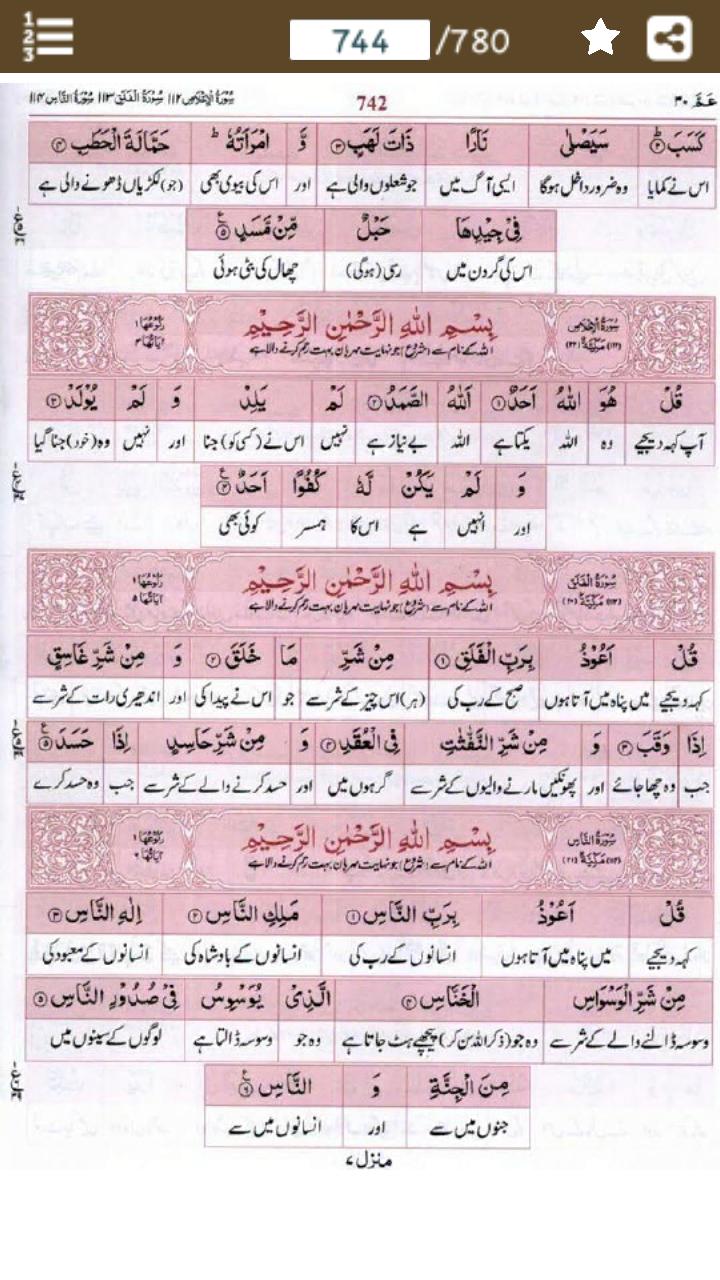 1 2 3 744 /780
عَمَّ ٣٠ 742 سُوْرَةُ الْاِخْلَاصِ ١١٢ سُوْرَةُ الْفَلَقِ ١١٣ سُوْرَةُ النَّاسِ ١١٤
كَسَبَ ؕ ﴿۲﴾ سَيَصْلٰى نَارًا ذَاتَ لَهَبٍ ﴿۳﴾ وَّ امْرَاَتُهٗ ؕ حَمَّالَةَ الْحَطَبِ ﴿۴﴾
اس نے کمایا وہ ضرور داخل ہوگا ایسی آگ میں جو شعلوں والی ہے اور اس کی بیوی بھی (جو) لکڑیاں ڈھونے والی ہے
فِيْ جِيْدِهَا حَبْلٌ مِّنْ مَّسَدٍ ﴿۵﴾ ع
اس کی گردن میں رسی (ہوگی) چھال کی بٹی ہوئی
سُوْرَةُ الْاِخْلَاصِ (١١٢) مَكِّيَّةٌ (٢٢) بِسْمِ اللّٰهِ الرَّحْمٰنِ الرَّحِيْمِ رُكُوْعُهَا ١ اٰيَاتُهَا ٤
اللہ کے نام سے (شروع) جو نہایت مہربان بہت رحم کرنے والا ہے
قُلْ هُوَ اللّٰهُ اَحَدٌ ﴿۱﴾ اَللّٰهُ الصَّمَدُ ﴿۲﴾ لَمْ يَلِدْ وَ لَمْ يُوْلَدْ ﴿۳﴾
آپ کہہ دیجیے وہ اللہ یکتا ہے اللہ بے نیاز ہے نہیں اس نے (کسی کو) جنا اور نہیں وہ (خود) جنا گیا
وَ لَمْ يَكُنْ لَّهٗ كُفُوًا اَحَدٌ ﴿۴﴾ ع
اور نہیں ہے اس کا ہمسر کوئی بھی
سُوْرَةُ الْفَلَقِ (١١٣) مَكِّيَّةٌ (٢٠) بِسْمِ اللّٰهِ الرَّحْمٰنِ الرَّحِيْمِ رُكُوْعُهَا ١ اٰيَاتُهَا ٥
اللہ کے نام سے (شروع) جو نہایت مہربان بہت رحم کرنے والا ہے
قُلْ اَعُوْذُ بِرَبِّ الْفَلَقِ ﴿۱﴾ مِنْ شَرِّ مَا خَلَقَ ﴿۲﴾ وَ مِنْ شَرِّ غَاسِقٍ
کہہ دیجیے میں پناہ میں آتا ہوں صبح کے رب کی (ہر) اس چیز کے شر سے جو اس نے پیدا کی اور اندھیری رات کے شر سے
اِذَا وَقَبَ ﴿۳﴾ وَ مِنْ شَرِّ النَّفّٰثٰتِ فِي الْعُقَدِ ﴿۴﴾ وَ مِنْ شَرِّ حَاسِدٍ اِذَا حَسَدَ ﴿۵﴾ ع
جب وہ چھا جائے اور پھونکیں مارنے والیوں کے شر سے گرہوں میں اور حسد کرنے والے کے شر سے جب وہ حسد کرے
سُوْرَةُ النَّاسِ (١١٤) مَكِّيَّةٌ (٢١) بِسْمِ اللّٰهِ الرَّحْمٰنِ الرَّحِيْمِ رُكُوْعُهَا ١ اٰيَاتُهَا ٦
اللہ کے نام سے (شروع) جو نہایت مہربان بہت رحم کرنے والا ہے
قُلْ اَعُوْذُ بِرَبِّ النَّاسِ ﴿۱﴾ مَلِكِ النَّاسِ ﴿۲﴾ اِلٰهِ النَّاسِ ﴿۳﴾
کہہ دیجیے میں پناہ میں آتا ہوں انسانوں کے رب کی انسانوں کے بادشاہ کی انسانوں کے معبود کی
مِنْ شَرِّ الْوَسْوَاسِ الْخَنَّاسِ ﴿۴﴾ الَّذِيْ يُوَسْوِسُ فِيْ صُدُوْرِ النَّاسِ ﴿۵﴾
وسوسہ ڈالنے والے کے شر سے وہ جو (ذکر اللہ سن کر) پیچھے ہٹ جاتا ہے وہ جو وسوسہ ڈالتا ہے لوگوں کے سینوں میں
مِنَ الْجِنَّةِ وَ النَّاسِ ﴿۶﴾ ع
جنوں میں سے اور انسانوں میں سے
منزل ۷